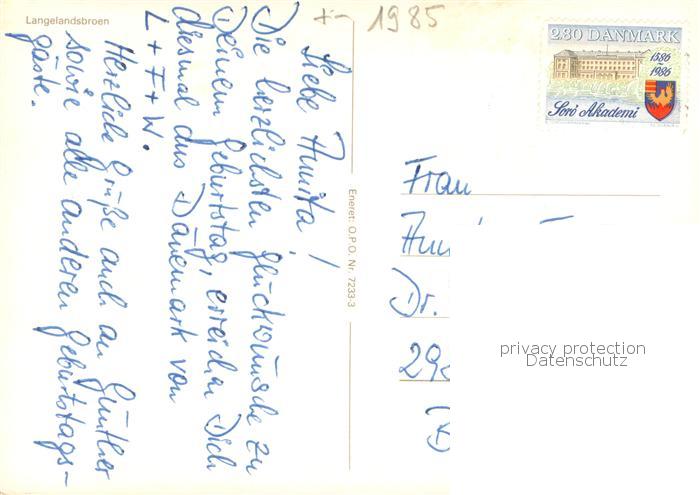 Langelandsbroen
1985
2.80 DANMARK
1586
1986
Sorø Akademi
Liebe Annita!
Die herzlichsten Glückwünsche zu
Deinem Geburtstag, erreichen Dich
diesmal aus Dänemark von
L + F + W.
Herzliche Grüße auch an Günther
sowie alle anderen Geburtstags-
gäste.
Eneret: O.P.O. Nr. 7233-3
Frau
Dr.
privacy protection
Datenschutz